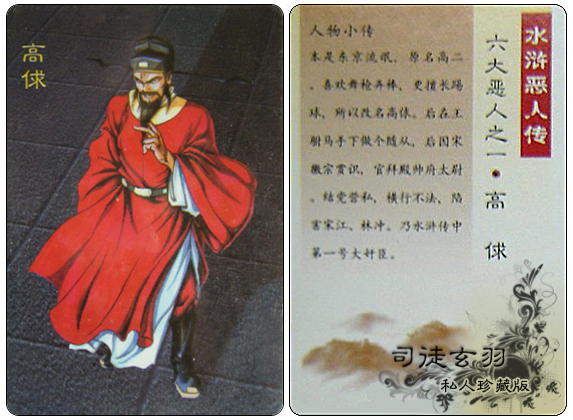 高俅
水浒恶人传
六大恶人之一·高俅
人物小传
本是东京流氓，原名高二
，喜欢舞枪弄棒，更擅长踢
球，所以改名高俅。后在王
驸马手下做个随从，后因宋
徽宗赏识，官拜殿帅府太尉
。结党营私，横行不法，陷
害宋江、林冲。乃水浒传中
第一号大奸臣。
司徒玄羽
私人珍藏版